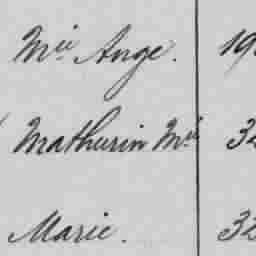 Mie Ange. 19
Mathurin Mie 32
Marie. 32